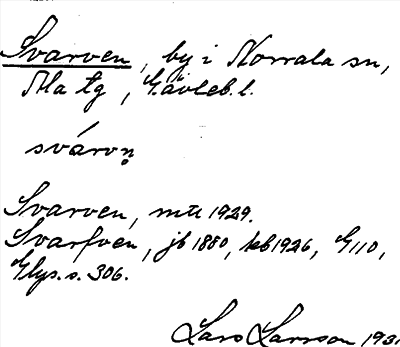 Svarven, by i Norrala sn,
Ala tg, Gävleb. l.
svárvn̥
Svarven, mtl 1929.
Svarfven, jb 1880, kb 1926, G 110,
Glys. s. 306.
Lars Larsson 193